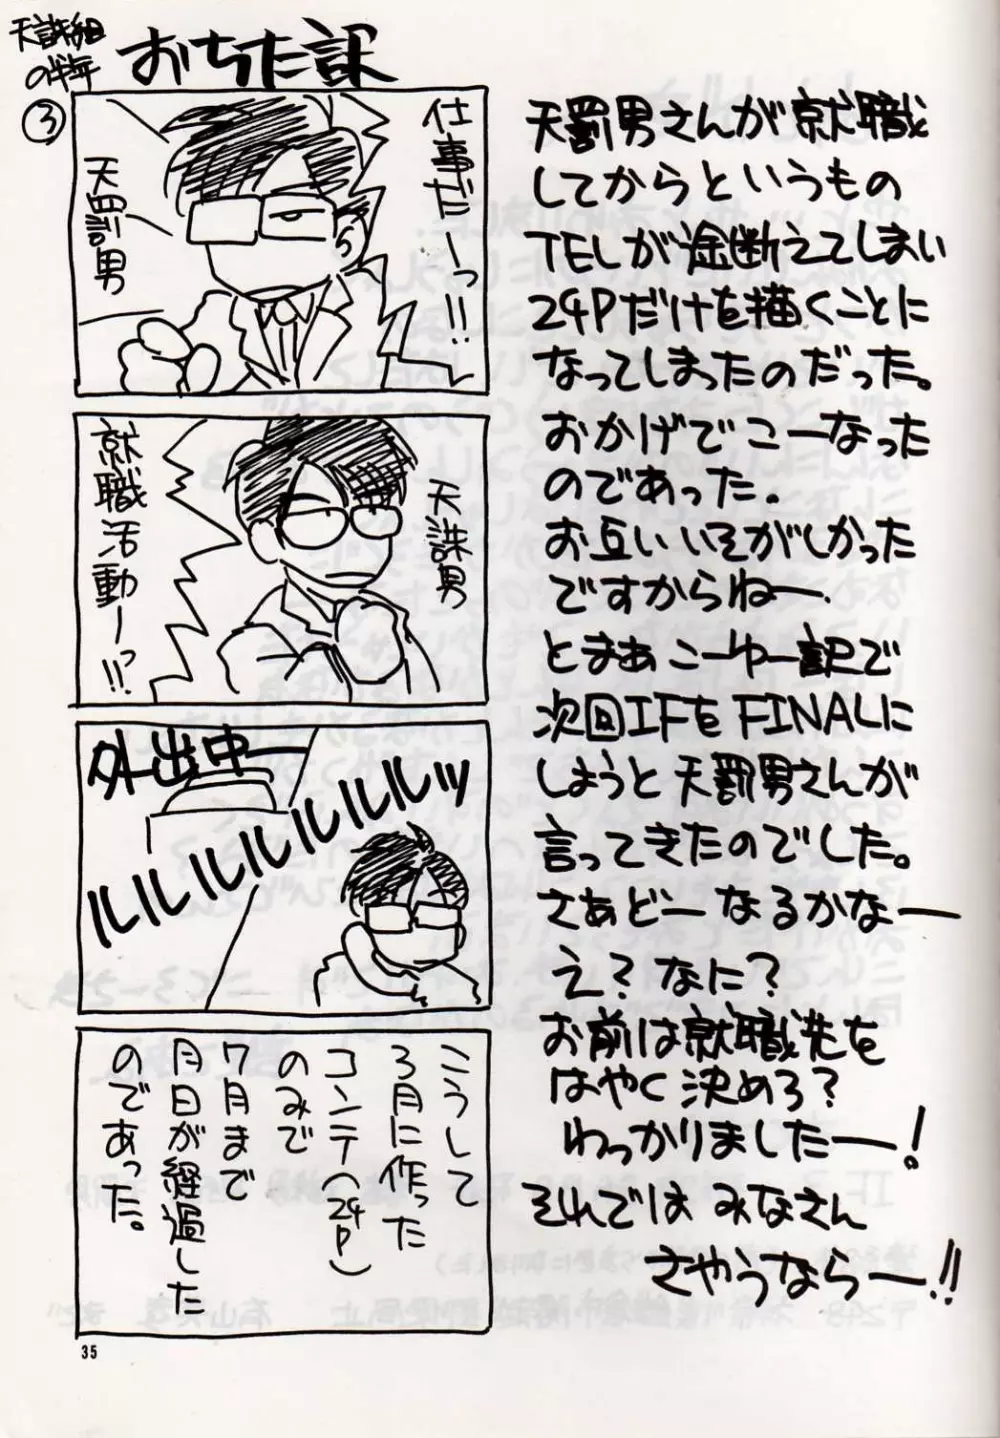 天誅組
の半年
おちた訳
③
仕事だーっ!!
天罰男
天誅男
就職活動ーっ!!
外出中
ルルルルルルルルルッ
こうして
3月に作った
コンテ(24P)
のみで
7月まで
月日が経過した
のであった。
天罰男さんが就職
してからというもの
TELが途断えてしまい
24Pだけを描くことに
なってしまったのだった。
おかげでこーなった
のであった.
お互いいそがしかった
ですからねー.
とまあこーゆー訳で
次回IFをFINALに
しようと天罰男さんが
言ってきたのでした。
さあどーなるかなー
え?なに?
お前は就職先を
はやく決めろ?
わっかりましたー!
それではみなさん
さやうならー!!
35